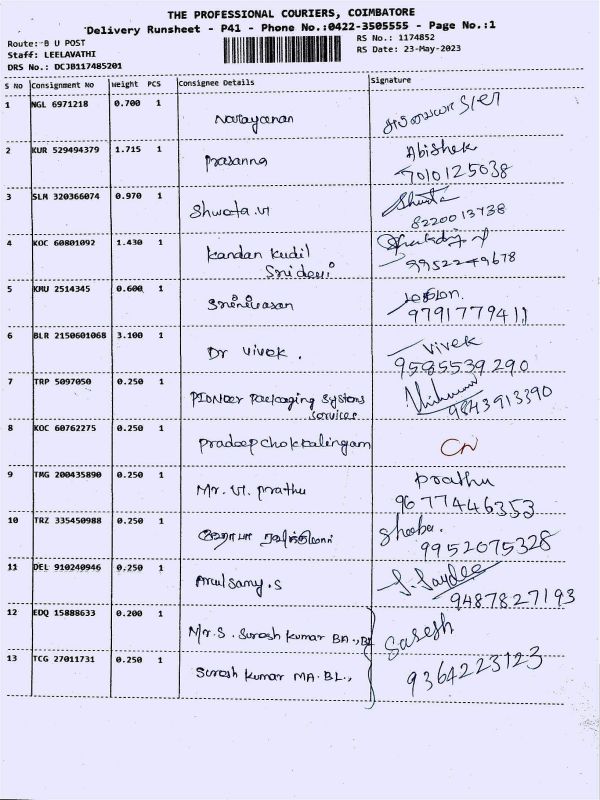 THE PROFESSIONAL COURIERS, COIMBATORE
Delivery Runsheet - P41 - Phone No.:0422-3505555 - Page No.:1
Route: B U POST RS No.: 1174852
Staff: LEELAVATHI RS Date: 23-May-2023
DRS No.: DCJB117485201
S No Consignment No Weight PCS Consignee Details Signature
1 NGL 6971218 0.700 1 Narayanan
2 KUR 529494379 1.715 1 Prasanna Abishek
7010125038
3 SLM 320366074 0.970 1 Shwata.VI Shwata
8220013738
4 KOC 60801092 1.430 1 Kandan Kudil
Sridevi 9952249678
5 KMU 2514345 0.600 1 Srinivasan
9791779411
6 BLR 2150601068 3.100 1 Dr Vivek. Vivek
9585539290
7 TRP 5097050 0.250 1 Pioneer Packaging Systems
Services 9843913390
8 KOC 60762275 0.250 1 Pradeep Chokkalingam CN
9 TMG 200435890 0.250 1 Mr. VI. Prathu Prathu
9677446353
10 TRZ 335450988 0.250 1 Sheeba.
9952075328
11 DEL 910240946 0.250 1 Arulsamy.S
9487827193
12 EDQ 15888633 0.200 1 Mr.S. Suresh Kumar BA.,BL Saresh
13 TCG 27011731 0.250 1 Suresh Kumar MA.BL., 9364223123